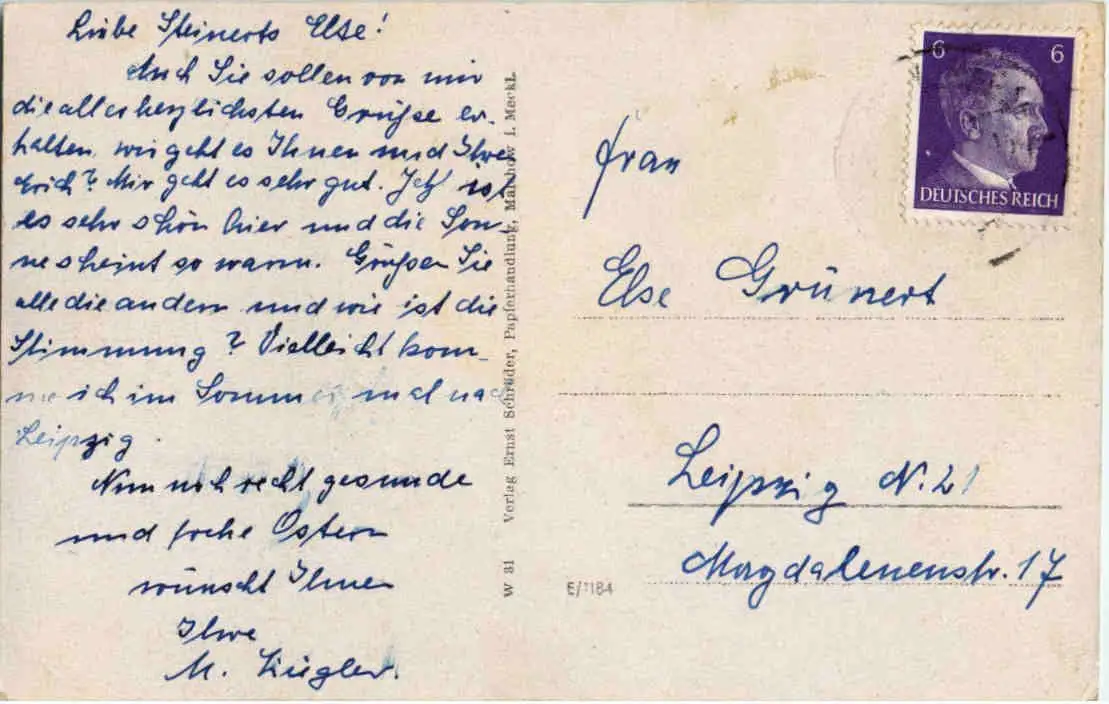 Liebe Steinerts Else!
Auch Sie sollen von mir
die allerherzlichsten Grüße er-
halten, wie geht es Ihnen und Ihre
Erich? Mir geht es sehr gut. Jetzt ist
es sehr schön hier und die Son-
ne scheint so warm. Grüßen Sie
alle die andern und wie ist die
Stimmung? Vielleicht kom-
me ich im Sommer mal nach
Leipzig.
Nun noch recht gesunde
und frohe Ostern
wünscht Ihnen
Ihre
M. Ziegler.
W 31 Verlag Ernst Schröder, Papierhandlung, Malchow i. Meckl.
6 6
DEUTSCHES REICH
Frau
Else Grünert
Leipzig N. 21
Magdalenenstr. 17
E/1184